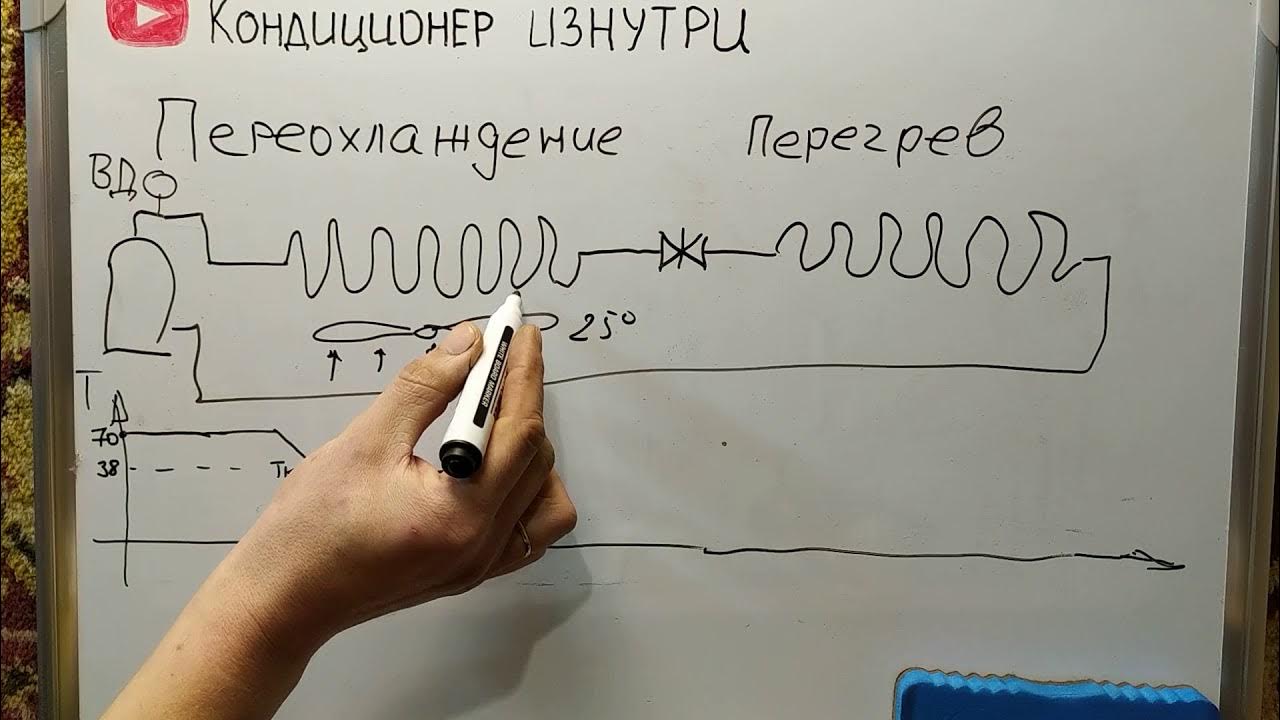 КОНДИЦИОНЕР ИЗНУТРИ
Переохлаждение Перегрев
ВД
25°
Т
70
38
WHITE BOARD MARKER